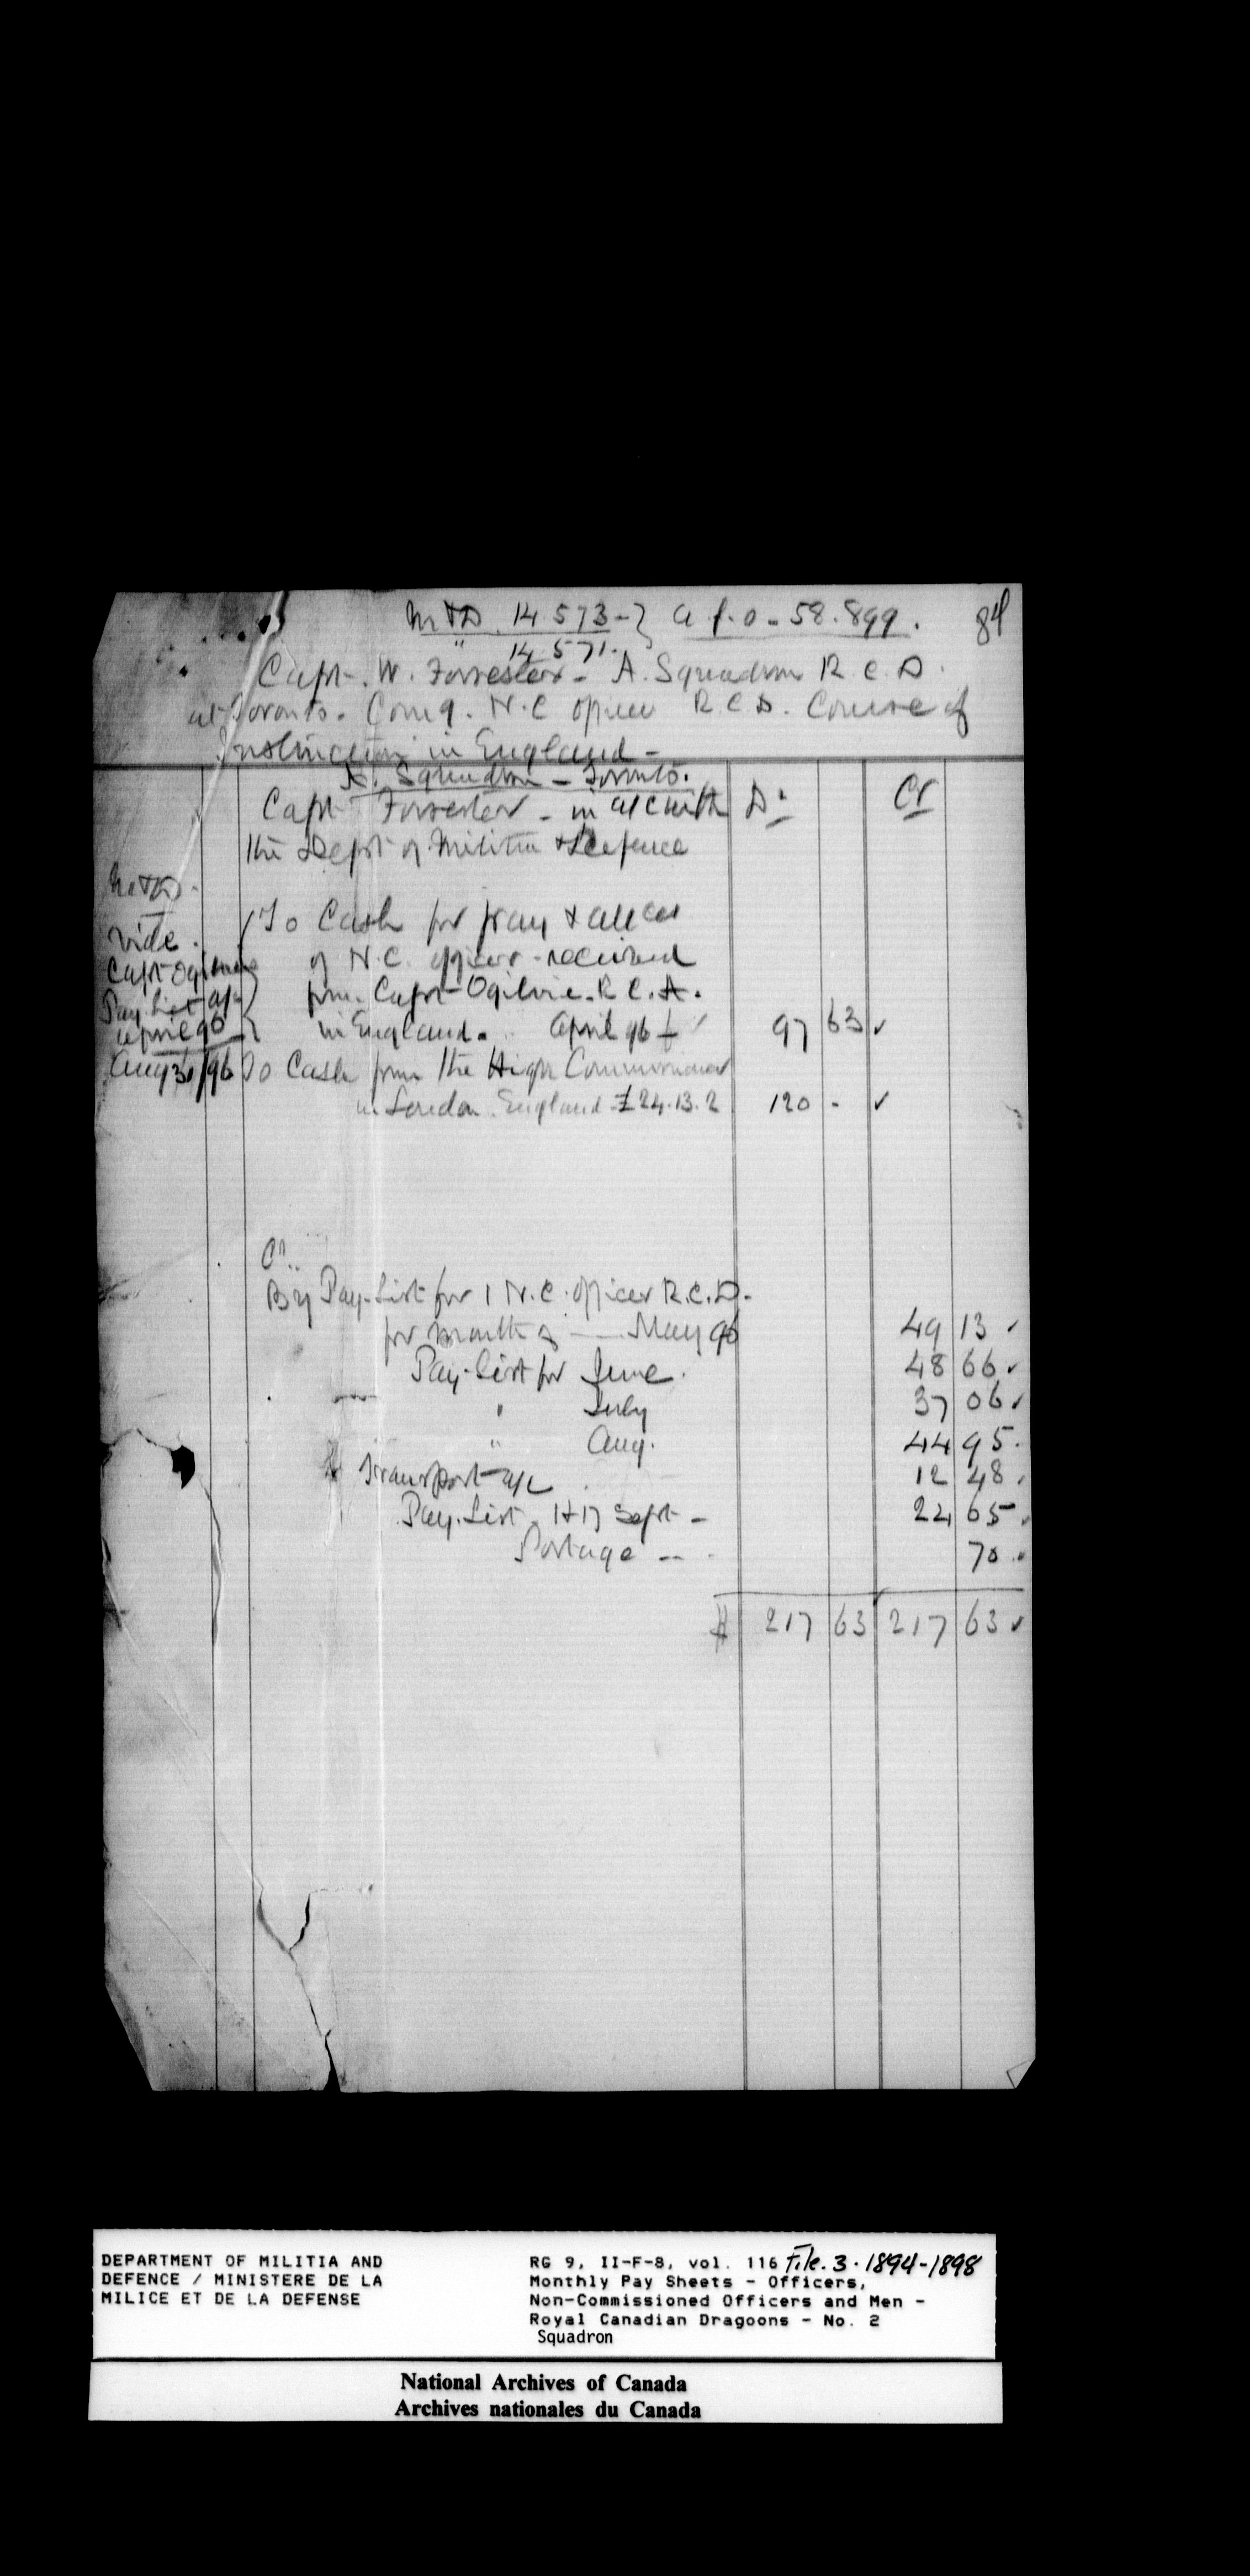 M&D. 14573- } a.f.o - 58.899. 84
" 14571.
Capt. W. Forrester - A. Squadron R.C.D.
at Toronto. Com'g. N.C officer R.C.D. Course of
Instruction in England -
A. Squadron - Toronto.
Capt Forrester - in a/c with Dr Cr
the Dept of Militia & Defence
M&D.
vide. To Cash for pay & allces
Capt Ogilvie's of N.C. officer - received
Pay List a/c from Capt Ogilvie. R C. A.
April 96 in England. April 96 97 63 ✓
Aug 31/96 To Cash from the High Commissioner
in London. England - £24.13.2 120 - ✓
Cr.
By Pay-List for 1 N.C. officer R.C.D.
for month of — May 96 49 13 ✓
Pay-List for June. 48 66 ✓
" July 37 06 ✓
" Aug. 44 95.
Transport a/c 12 48
Pay. List. 1st 17 Sept - 22 65
Postage -- 70
$ 217 63 217 63 ✓
DEPARTMENT OF MILITIA AND
DEFENCE / MINISTERE DE LA
MILICE ET DE LA DEFENSE
RG 9, II-F-8, vol. 116 File. 3. 1894-1898
Monthly Pay Sheets - Officers,
Non-Commissioned Officers and Men -
Royal Canadian Dragoons - No. 2
Squadron
National Archives of Canada
Archives nationales du Canada